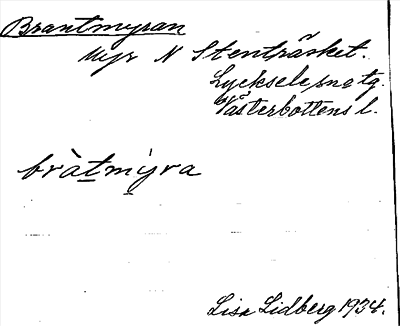 Brantmyran
Myr N Stenträsket.
Lycksele sn o tg.
Västerbottens l.
bràt̲m̲ýra
Lisa Lidberg 1934.